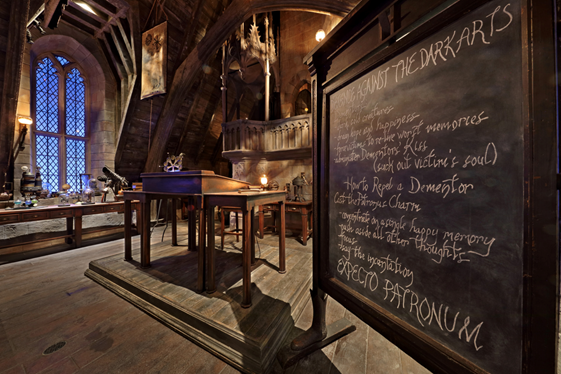 AGAINST THE DARK ARTS
creatures
hope and happiness
relive worst memories
Dementors' Kiss
(suck out victim's soul)
How to Repel a Dementor
Cast the Patronus Charm
concentrate on a single happy memory
aside all other thoughts
focus
say the incantation
EXPECTO PATRONUM